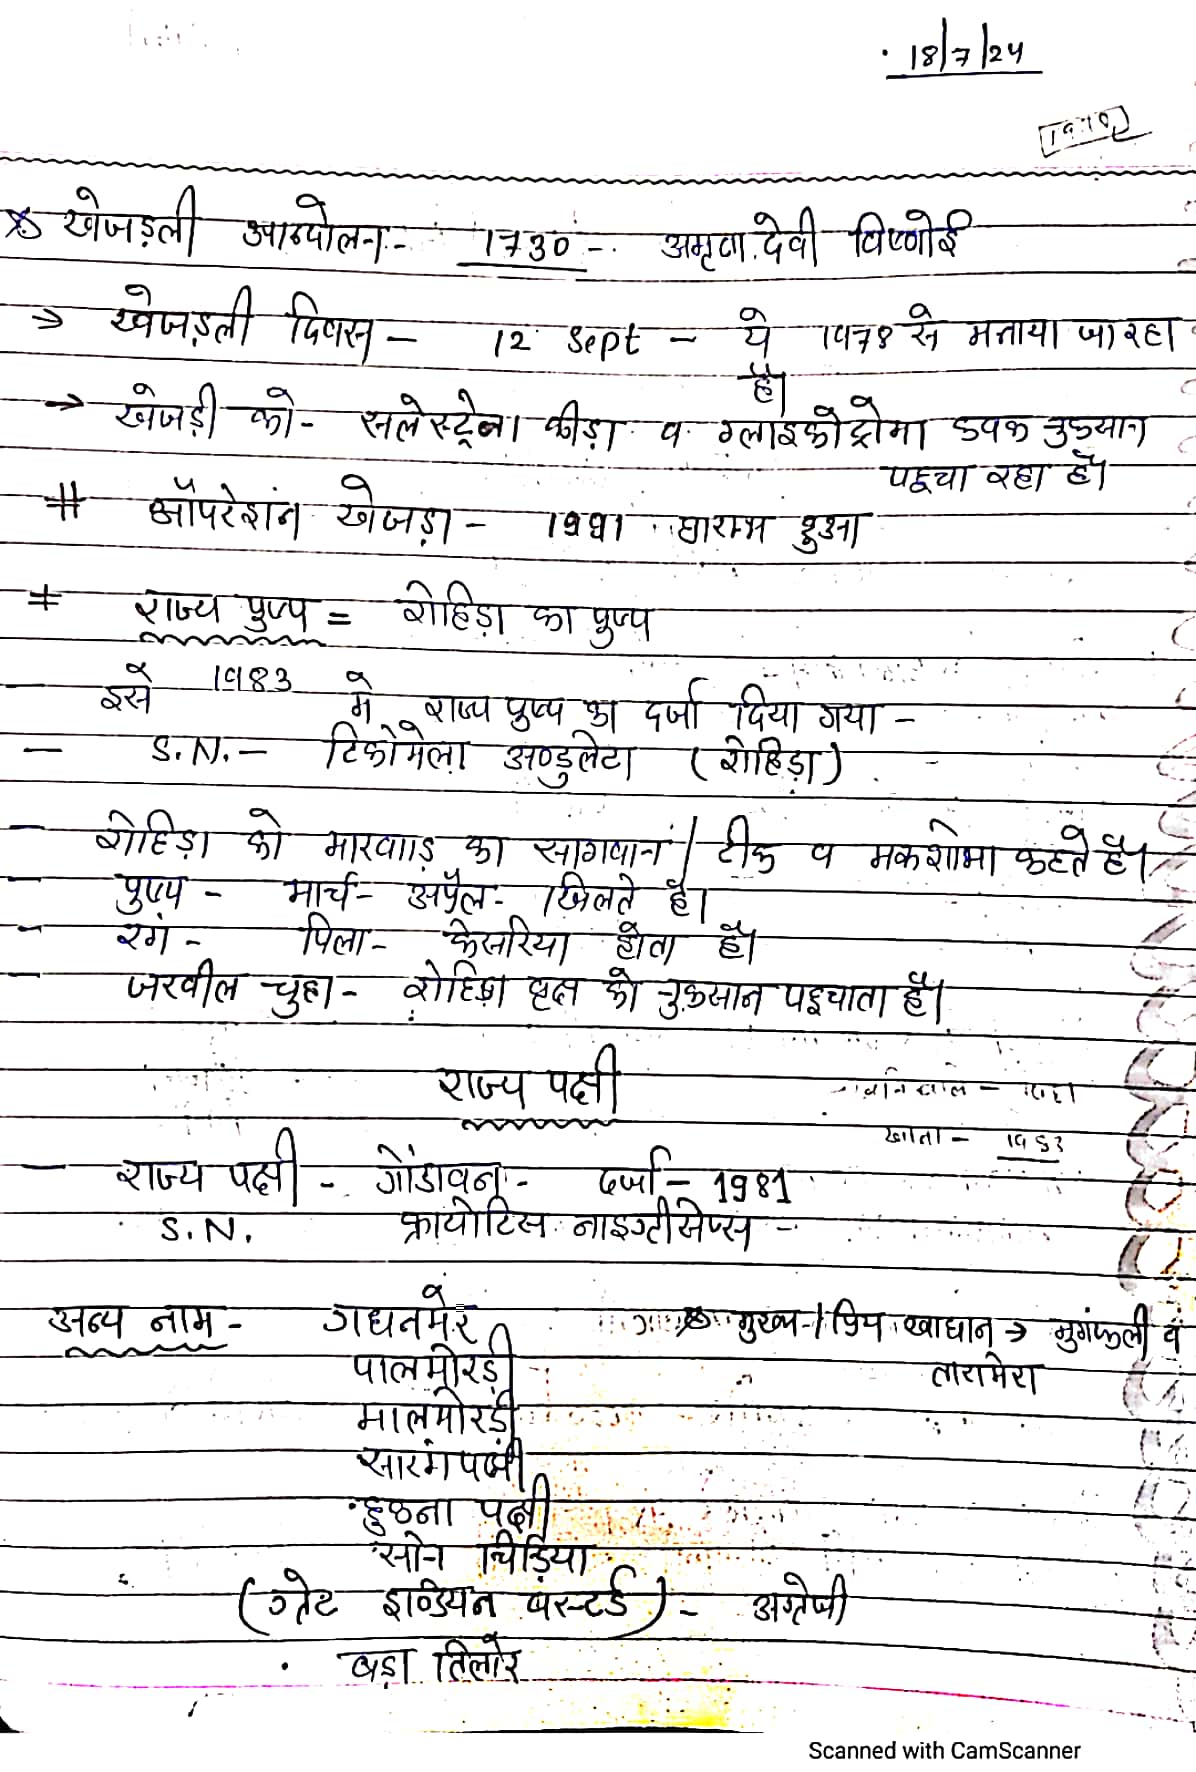 18/7/24
खेजड़ली आन्दोलन - 1730 - अमृता देवी विष्णोई
→ खेजड़ली दिवस - 12 Sept - ये 1978 से मनाया जा रहा
है।
→ खेजड़ी को - सलेस्ट्रेना कीड़ा व ग्लाइकोट्रोमा कवक नुकसान
पहूचा रहा है।
# ऑपरेशंन खेजड़ा - 1991 प्रारम्भ हुआ
+ राज्य पुष्प = रोहिड़ा का पुष्प
इसे 1983 मे राज्य पुष्प का दर्जा दिया गया -
- S.N. - टिकोमेला अण्डुलेटा (रोहिड़ा)
- रोहिड़ा को मारवाड़ का सागवानं / टीक व मरूशोभा कहते है।
- पुष्प - मार्च - अप्रैल - खिलते है।
- रगं - पिला - केसरिया होता है।
- जरबील चुहा - रोहिड़ा वृक्ष को नुकसान पहुचाता है।
राज्य पक्षी
- राज्य पक्षी - गोंडावन - दर्जा - 1981
S.N. क्रायोटिस नाइग्टीसेप्स -
अन्य नाम - गधनमेर मुख्य / प्रिय खाधान → मुगंफुली व
पालमोरड़ी तारामेरा
मालमोरड़ी
सारंगपक्षी
हुकना पक्षी
सोन चिड़िया
(ग्रेट इण्डियन बस्टर्ड) - अग्रेजी
बड़ा तिलोर
Scanned with CamScanner